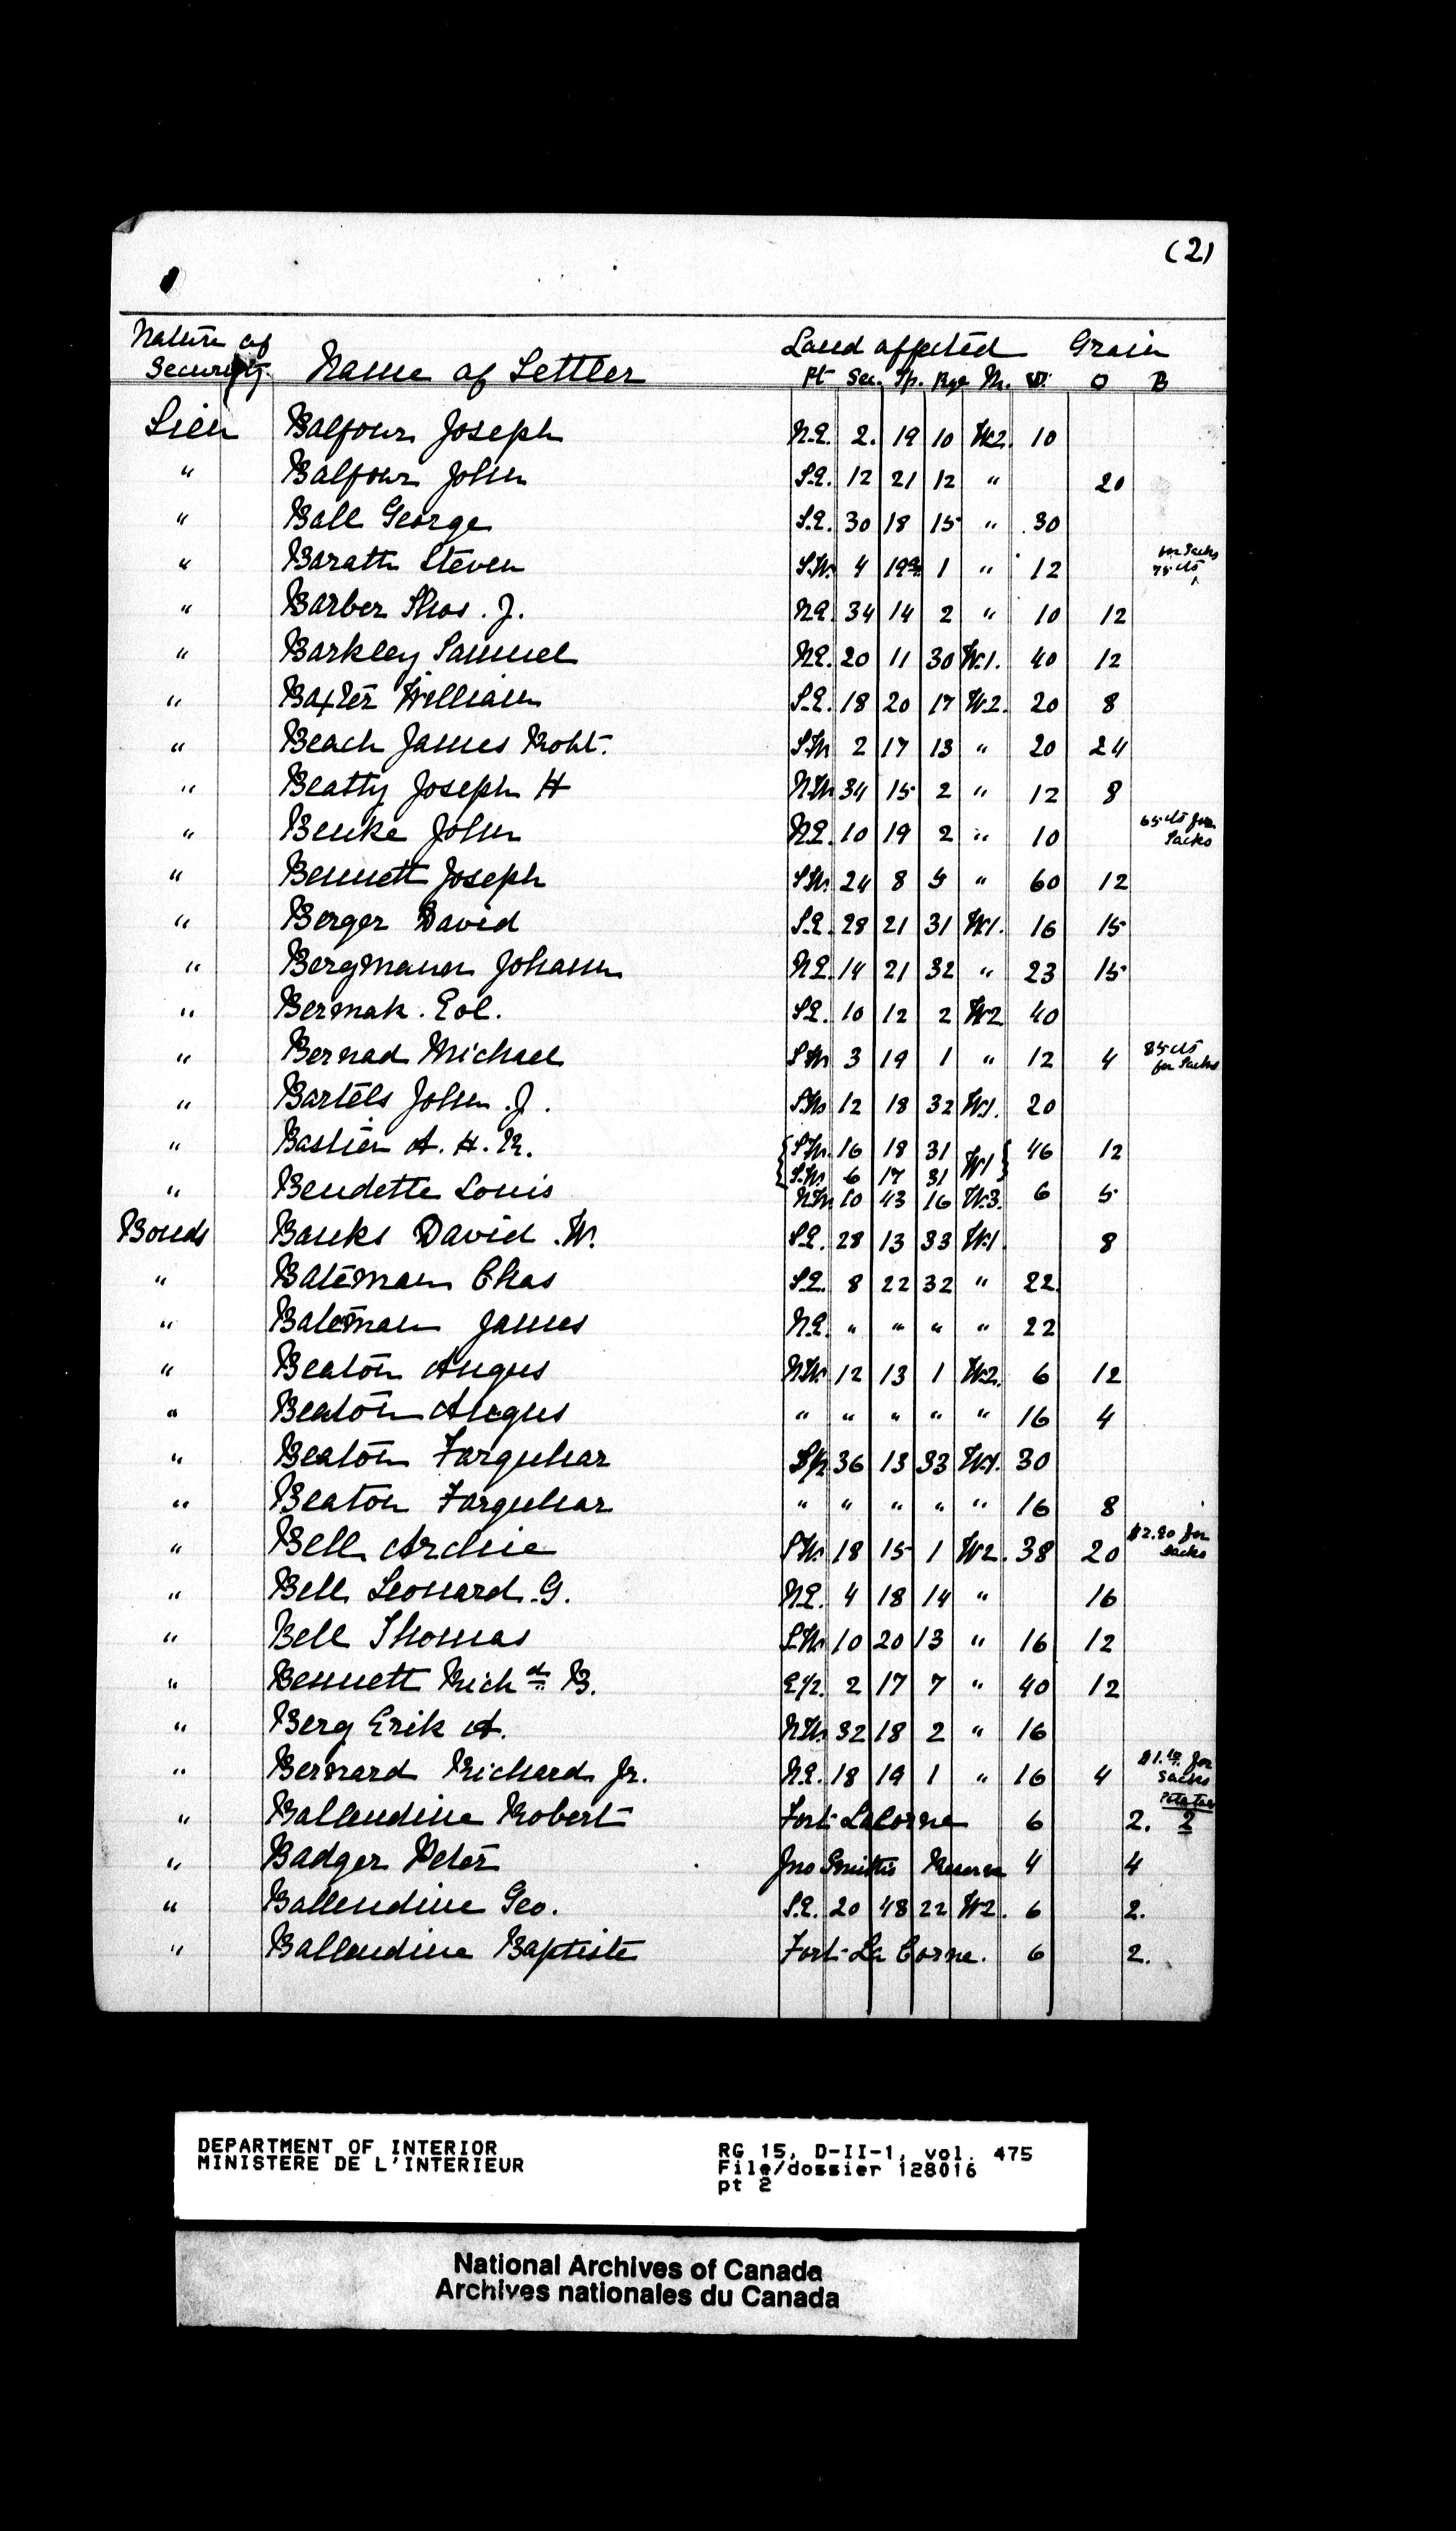 (2)
Nature of Security Name of Settler Land affected Grain
Pt Sec. Tp. Rge M. W. O B
Lien Balfour Joseph N.E. 2. 19 10 W2. 10
" Balfour John S.E. 12 21 12 " 20
" Ball George S.E. 30 18 15 " 30
" Barath Steven S.W. 4 19a 1 " 12 for Sacks 75 cts
" Barber Thos. J. N.E. 34 14 2 " 10 12
" Barkley Samuel N.E. 20 11 30 W.1. 40 12
" Baxter William S.E. 18 20 17 W.2. 20 8
" Beach James Robt. S.W. 2 17 13 " 20 24
" Beatty Joseph H N.W. 34 15 2 " 12 8
" Benke John N.E. 10 19 2 " 10 65 cts for Sacks
" Bennett Joseph S.W. 24 8 5 " 60 12
" Berger David S.E. 28 21 31 W.1. 16 15
" Bergmann Johann N.E. 14 21 32 " 23 15
" Bermak. Eol. S.E. 10 12 2 W2 40
" Bernad Michael S.W. 3 19 1 " 12 4 85 cts for Sacks
" Bartels John. J. S.W. 12 18 32 W.1. 20
" Bastien A. H. R. { S.W. 16 18 31 W1 } 46 12
{ S.W. 6 17 31
" Bendette Louis N.W. 10 43 16 W.3. 6 5
Bonds Banks David .W. S.E. 28 13 33 W.1. 8
" Bateman Chas S.E. 8 22 32 " 22
" Bateman James N.E. " " " " 22
" Beaton Angus N.W. 12 13 1 W.2. 6 12
" Beaton Angus " " " " " 16 4
" Beaton Farquhar S½ 36 13 33 W.1. 30
" Beaton Farquhar " " " " " 16 8
" Bell Archie S.W. 18 15 1 W2. 38 20 $2.20 for Sacks
" Bell Leonard .G. N.E. 4 18 14 " 16
" Bell Thomas S.W. 10 20 13 " 16 12
" Bennett Richd. B. E½. 2 17 7 " 40 12
" Berg Erik A. N.W. 32 18 2 " 16
" Bernard Richard Jr. N.E. 18 19 1 " 16 4 for Sacks
" Ballendine Robert Fort LaCorne 6 2. Potatoes 2
" Badger Peter Jno Smith's Reserve 4 4
" Ballendine Geo. S.E. 20 48 22 W2. 6 2.
" Ballendine Baptiste Fort La Corne. 6 2.
DEPARTMENT OF INTERIOR
MINISTERE DE L'INTERIEUR
RG 15, D-II-1, vol. 475
File/dossier 128016
pt 2
National Archives of Canada
Archives nationales du Canada